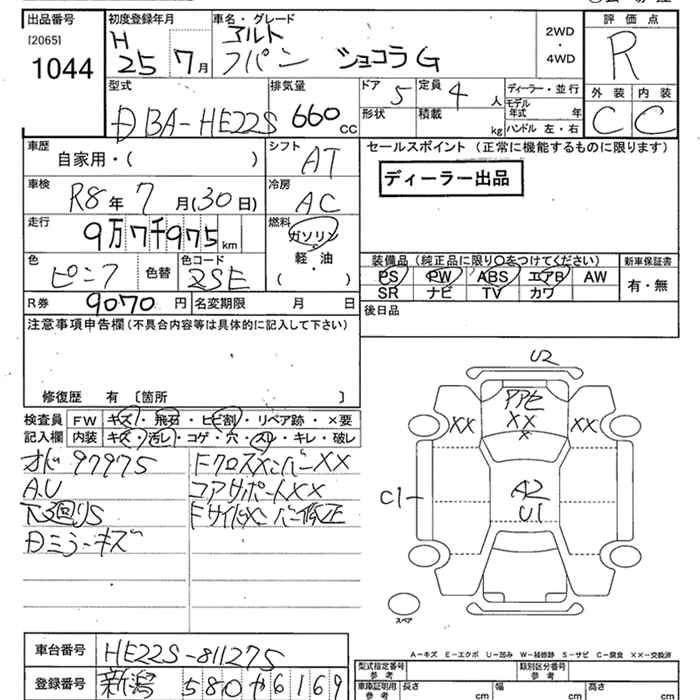 出品番号
[2065]
1044
初度登録年月
H
25 7月
車名・グレード
アルト
ラパン ショコラ G
2WD
・
4WD
評価点
R
外装 内装
C C
型式
DBA-HE22S
排気量
660 cc
ドア 5
定員 4 人
形状
積載 kg
ディーラー・並行
モデル年式 年
ハンドル 左・右
車歴
自家用・( )
シフト
AT
セールスポイント (正常に機能するものに限ります)
ディーラー出品
車検
R8年 7月(30日)
冷房
AC
走行
9万7千975 km
燃料
ガソリン
・
軽・油
( )
色
ピンク
色替
色コード
ZSE
装備品(純正品に限り○をつけてください)
PS PW ABS エアB AW
SR ナビ TV カワ
新車保証書
有・無
R券 9070 円
名変期限 月 日
後日品
注意事項申告欄(不具合内容等は具体的に記入して下さい)
修復歴 有 〔箇所 〕
検査員 FW キズ・飛石・ヒビ割・リペア跡・×要
記入欄 内装 キズ・汚レ・コゲ・穴・スレ・キレ・破レ
オド 97975
A.U
下回りS
Dミラーキズ
FクロスメンバーXX
コアサポートXX
Fサイドメンバー修正
U2
PPE
XX
×
XX
XX
C1
A2
U1
スペア
A-キズ E-エクボ U-凹み W-補修跡 S-サビ C-腐食 XX-交換済
車台番号 HE22S-811275
登録番号 新潟 580 か 6169
型式指定番号 参考
類別区分番号 参考
車庫証明用 参考
長さ cm
幅 cm
高さ cm